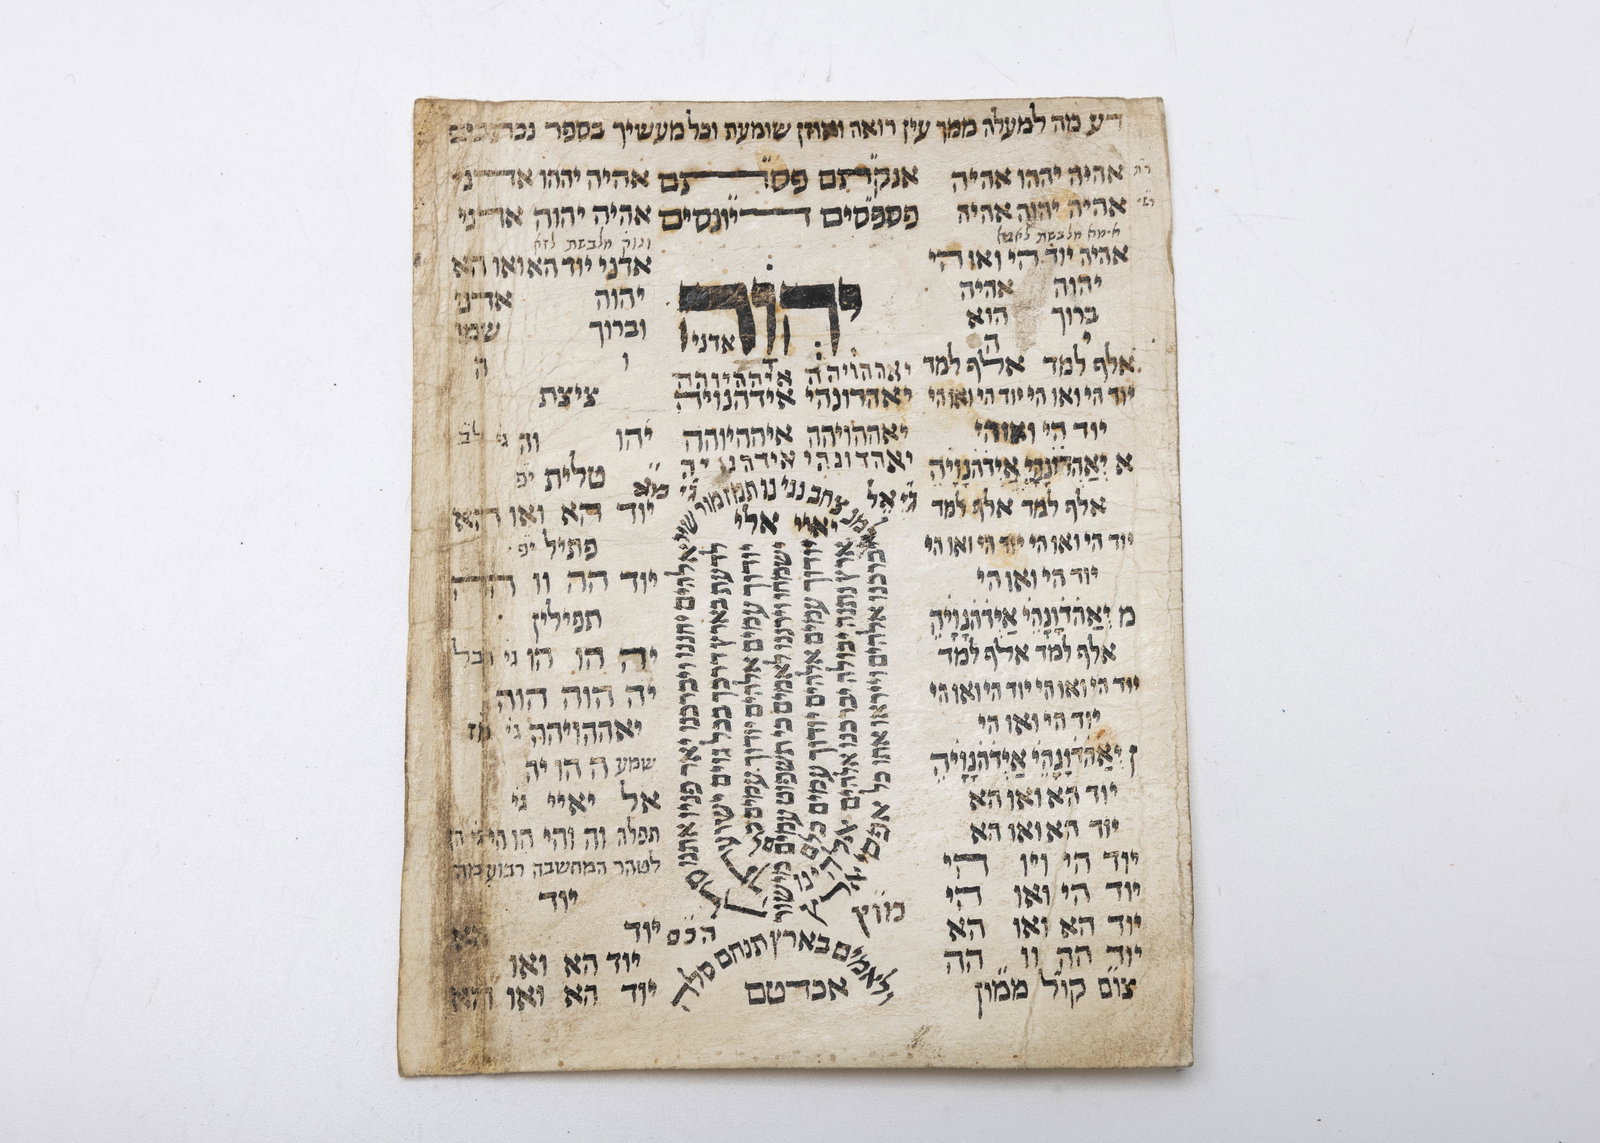 דע מה למעלה ממך עין רואה ואוזן שומעת וכל מעשיך בספר נכתבים
אהיה יההו אהיה
אהיה יהוה אהיה
אהיה יוד הי ואו הי
יהוה אהיה
ברוך הוא
י ה
אלף למד אלף למד
יוד הי ואו הי יוד הי ואו הי
יוד הי ואו הי
א יאהדונהי אידהנויה
אלף למד אלף למד
יוד הי ואו הי יוד הי ואו הי
יוד הי ואו הי
מ יאהדונהי אידהנויה
אלף למד אלף למד
יוד הי ואו הי יוד הי ואו הי
יוד הי ואו הי
ן יאהדונהי אידהנויה
יוד הא ואו הא
יוד הא ואו הא
יוד הי ויו הי
יוד הי ואו הי
יוד הא ואו הא
יוד הה וו הה
צום קול ממון
אנקתם פסתם
פספסים דיונסים
יהוה
אדני
יאההויהה איההיוהה
יאהדונהי אידהנויה
יאההויהה איההיוהה
יאהדונהי אידהנויה
יאיי אלי
אלהים יחננו ויברכנו יאר פניו אתנו סלה
לדעת בארץ דרכך בכל גוים ישועתך
יודוך עמים אלהים יודוך עמים כלם
ישמחו וירננו לאמים כי תשפוט עמים מישור
ולאמים בארץ תנחם סלה
יודוך עמים אלהים יודוך עמים כלם
ארץ נתנה יבולה יברכנו אלהים אלהינו
יברכנו אלהים וייראו אותו כל אפסי ארץ
אכדטם
אהיה יההו אדני
אהיה יהוה אדני
אדני יוד הא ואו הא
יהוה אדני
וברוך שמו
ו ה
ציצת
יהו וה גי לב
טלית
יוד הא ואו הא
פתיל
יוד הה וו הה
תפילין
יה הו הו גי
יה הוה הוה
יאההויהה גי
שמע ה הו יה
אל יאיי גי
תפלה
לטהר המחשבה רבוע
יוד
יוד הא
יוד הא ואו
יוד הא ואו הא